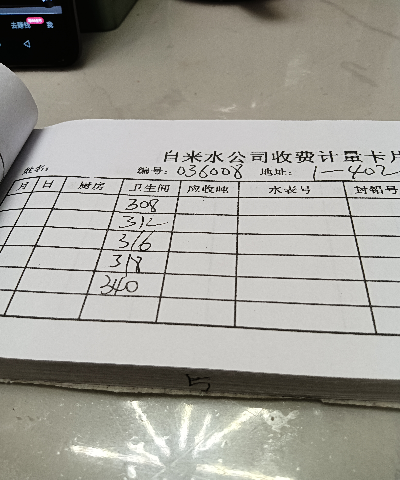 去赚钱 我
自来水公司收费计量卡片
姓名: 编号: 036008 地址: 1—402
月 日 厨房 卫生间 应收吨 水表号 封铅号
308
312
316
318
340
5